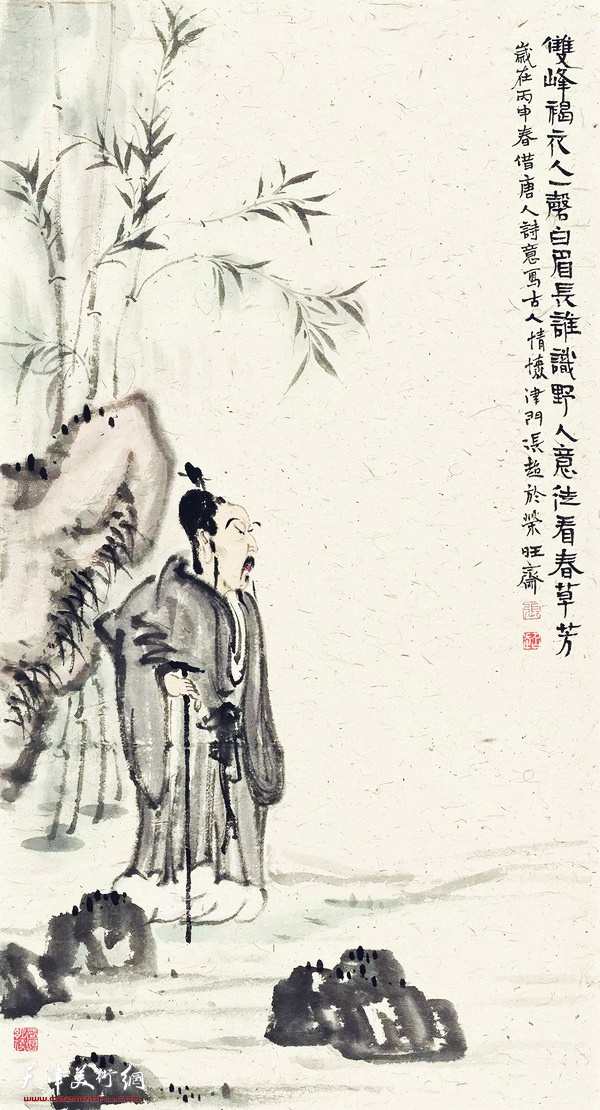 雙峰褐衣人一磬白眉長誰識野人意徒看春草芳
歲在丙申春借唐人詩意寫古人情懷津門張超於榮旺齋
天津美術網
www.022meishu.com